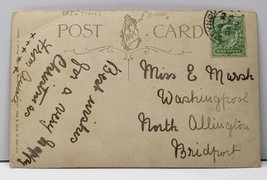 POST CARD
Best wishes
for a very happy
Christmas
x x x x x x
from
Miss E Marsh
Washingpool
North Allington
Bridport